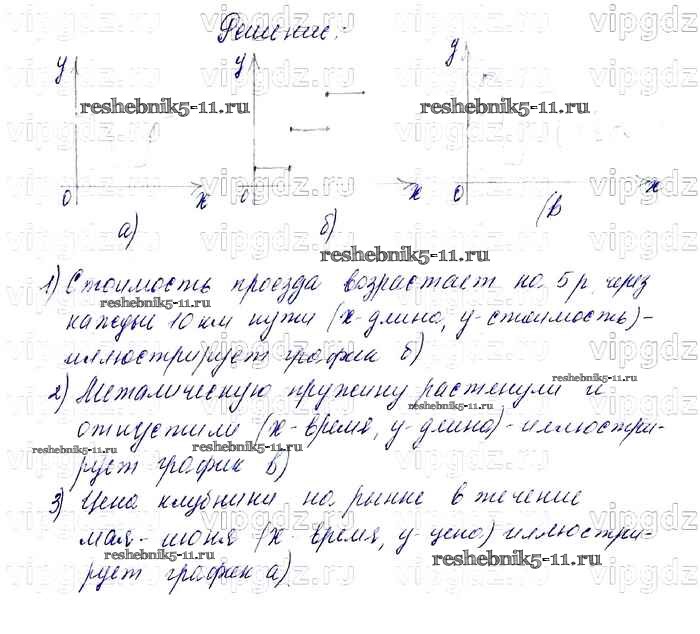 Решение:
у у у
0 х 0 х 0 х
а) б) (в
1) Стоимость проезда возрастает на 5 р через
каждые 10 км пути (х-длина, у-стоимость)-
иллюстрирует график б)
2) Металическую пружину растенули и
отпустили (х-время, у-длина)-иллюстри-
рует график в)
3) Цена клубники на рынке в течение
мая-июня (х-время, у-цена) иллюстри-
рует график а)
reshebnik5-11.ru
vipgdz.ru